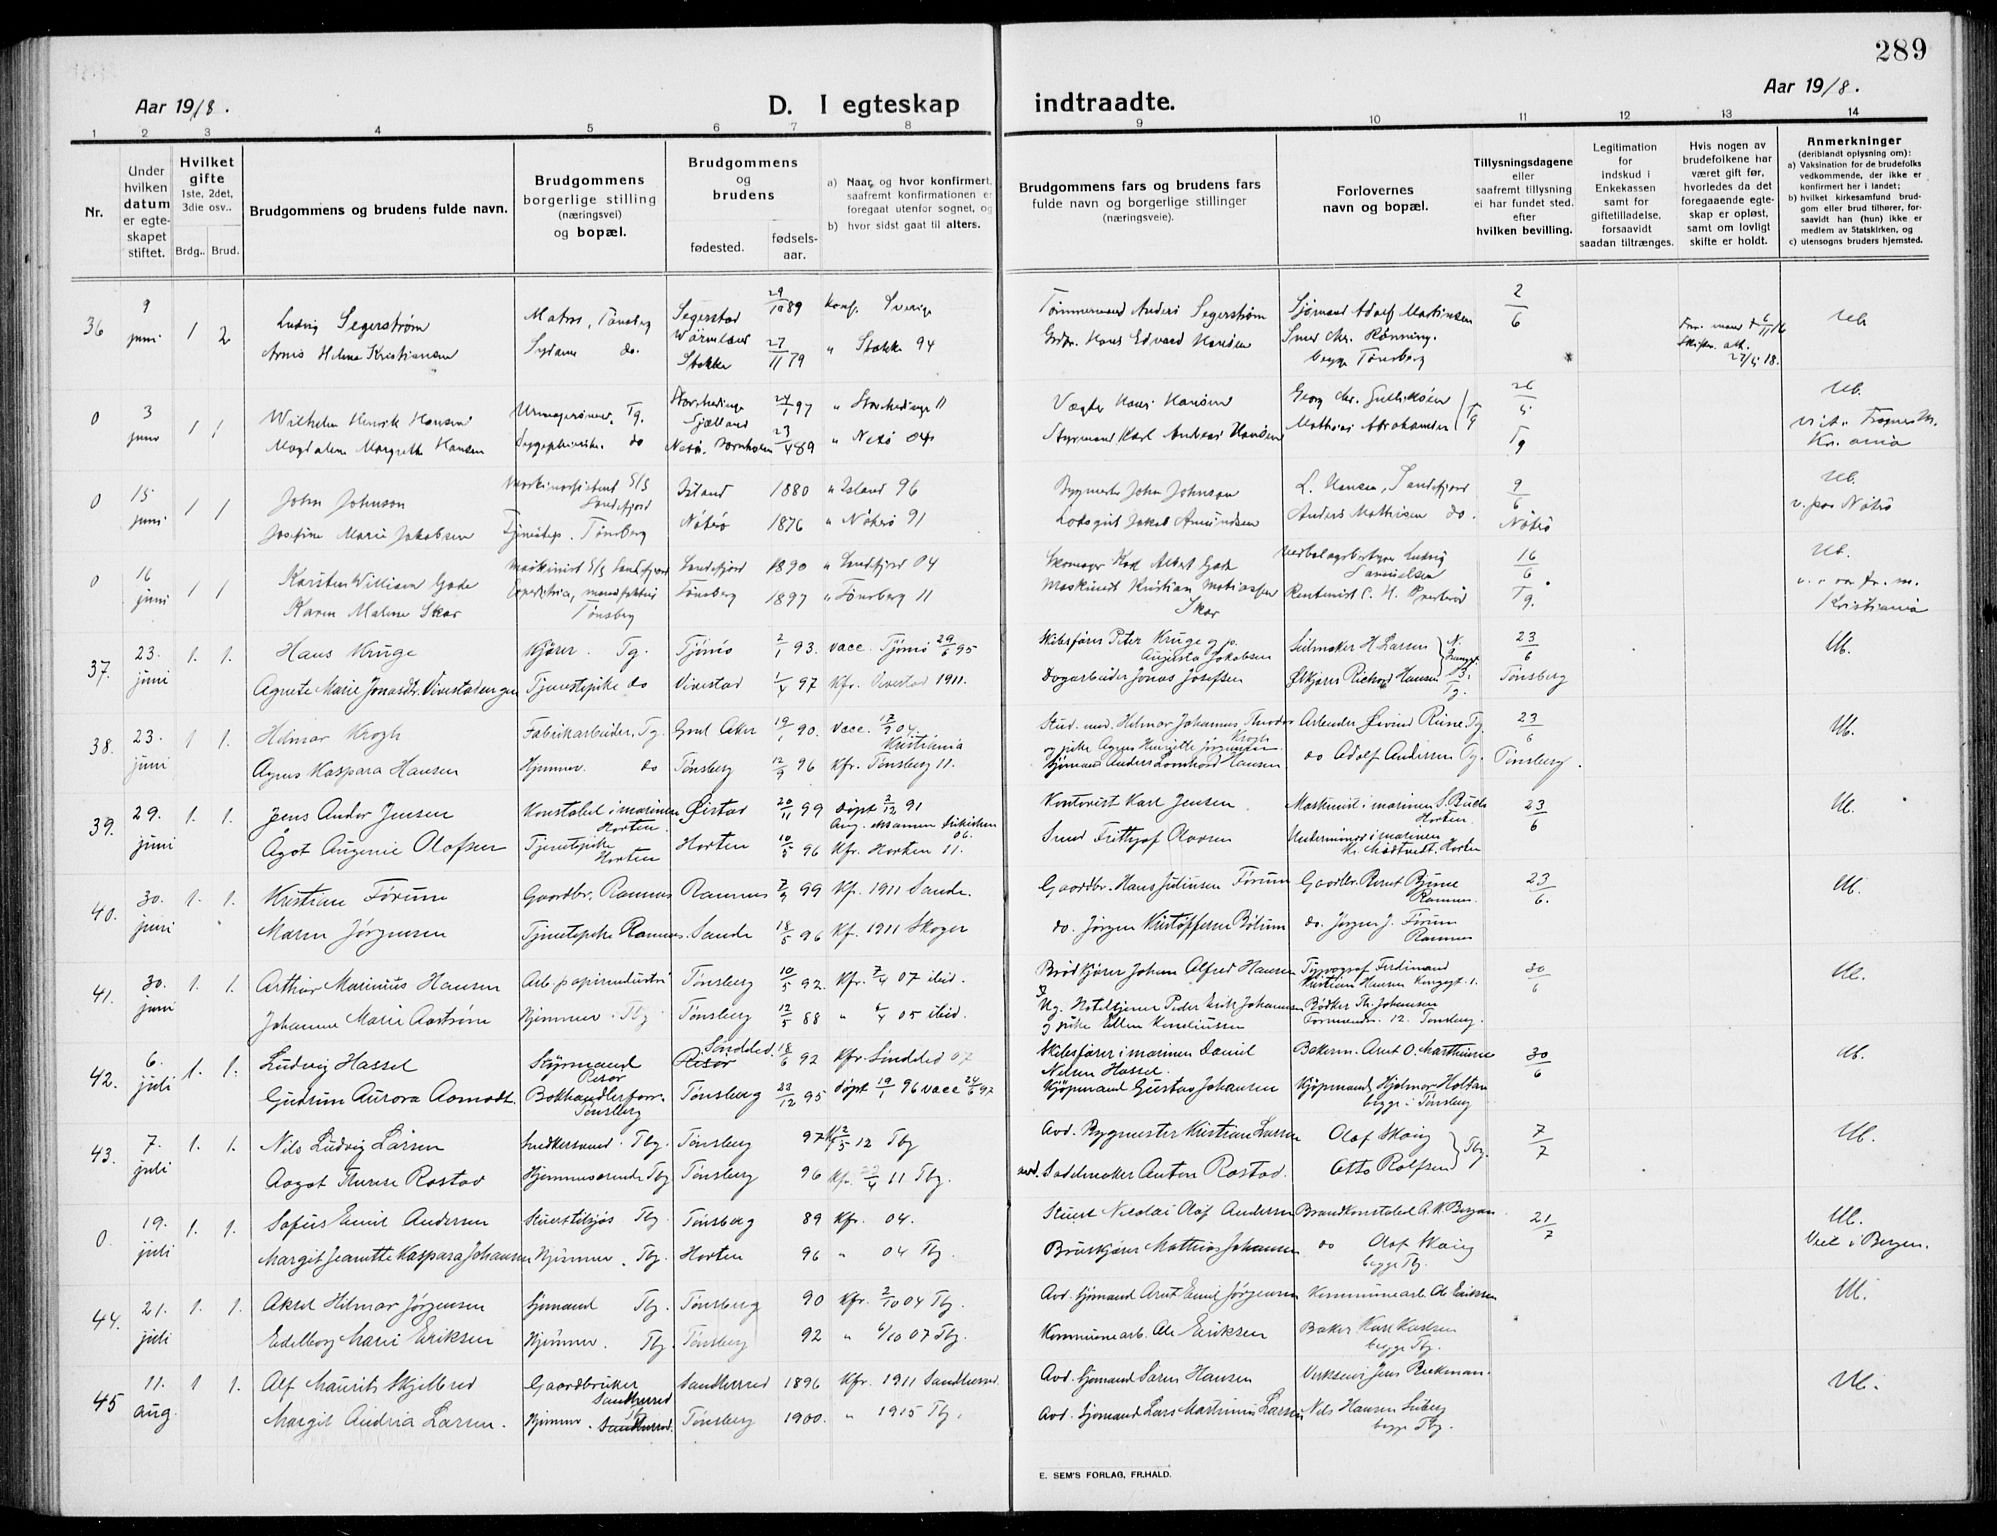 289
Aar 1918.
D. I egteskap
indtraadte.
Aar 1918.
1 2 3 4 5 6 7 8 9 10 11 12 13 14
Nr.
Under
hvilken
datum
er egte-
skapet
stiftet.
Hvilket
gifte
1ste, 2det,
3die osv..
Brdg.. Brud.
Brudgommens og brudens fulde navn.
Brudgommens
borgerlige stilling
(næringsvei)
og bopæl.
Brudgommens
og
brudens
fødested.
fødsels-
aar.
a) Naar, og hvor konfirmert,
saafremt konfirmationen er
foregaat utenfor sognet, og
b) hvor sidst gaat til alters.
Brudgommens fars og brudens fars
fulde navn og borgerlige stillinger
(næringsveie).
Forlovernes
navn og bopæl.
Tillysningsdagene
eller
saafremt tillysning
ei har fundet sted.
efter
hvilken bevilling.
Legitimation
for
indskud i
Enkekassen
samt for
giftetilladelse,
forsaavidt
saadan tiltrænges.
Hvis nogen av
brudefolkene har
været gift før,
hvorledes da det
foregaaende egte-
skap er opløst,
samt om lovligt
skifte er holdt.
Anmerkninger
(deriblandt oplysning om):
a) Vaksination for de brudefolks
vedkommende, der ikke er
konfirmert her i landet;
b) hvilket kirkesamfund brud-
gom eller brud tilhører, for-
saavidt han (hun) ikke er
medlem av Statskirken, og
c) utensogns bruders hjemsted.
36 9 juni 1 2 Ludvig Segerstrøm Matros, Tønsberg Segerstad Wärmland 29/10 89 Konf. Sverige Tømmermand Anders Segerstrøm Sjømand Adolf Martinsen 2/6 Ub.
Helene Kristiansen do. Stokke 27/11 79 " Stokke 94 Hans Edvard Hansen Chr. Rønning. begge Tønsberg
0 3 juni 1 1 Wilhelm Henrik Hansen Tg. Sjælland 97 " 11 Vægter Hans Hansen Georg Chr. Gulliksen 26/5 Ub.
Magdalene Margrethe Hansen do Bornholm 23/4 89 " 04 Styrmand Karl Andreas Hansen Mathias Abrahamsen Tg Tg Kr.ania
0 15 juni 1 1 John Johnson Sandefjord Island 1880 " Island 96 Bygmester John Johnson L. Hansen, Sandefjord 9/6 Ub.
Josefine Marie Jakobsen Tønsberg Nøtrø 1876 " Nøtrø 91 Jakob Amundsen Anders Mathisen do. Nøtrø v. Nøtrø
0 16 juni 1 1 Karsten William Gade Maskinist S/S Sandefjord Sandefjord 1890 " Sandefjord 04 Skomager Karl Albert Gade Ludvig Samuelsen 16/6 Ub.
Karen Malene Skar Tønsberg Tønsberg 1897 " Tønsberg 11 Maskinist Kristian Matiassen Skar Tg. Kristiania
37. 23. juni 1. 1. Hans Kruge Kjører. Tg. Tjømø 2/1 93. vacc. Tjømø 29/6 95 Skibsfører Peter Kruge og p. Augusta Jakobsen Seilmaker H Larsen 23/6 Ub.
Agnete Marie Jonasdtr. Vivestad Tjenestepike do Vivestad 1/4 97 Kfr. Vivestad 1911. Dagarbeider Jonas Josefsen Ølkjører Richard Hansen Tg. Tønsberg
38. 23. juni 1 1. Hilmar Krogh Fabrikarbeider, Tg. Aker 19/1 90. Vacc. 04. Kristiania Stud. med. Hilmar Johannes Theodor Krogh Arbeider Øivind Rune Tg 23/6 Ub.
og pike Agnes Henriette Jørgensen
Agnes Kaspara Hansen Hjemmev. do Tønsberg 12/9 96 Kfr. Tønsberg 11. Sjømand Anders Hansen do Adolf Andersen Tg. Tønsberg.
39. 29. juni 1. 1. Jens Andor Jensen Konstabel i marinen Horten Øistad 20/11 99 døpt 2/12 91 Kontorist Karl Jensen Maskinist i marinen S. Horten. 23/6 Ub.
Ågot Augenie Olafsen Tjenestepike Horten Horten 10/5 96 Kfr. Horten 11. Smed Frithjof Olavsen Underminør i marinen Horten
40. 30. juni 1. 1. Kristian Førum Gaardbr. Ramnes Ramnes 99 Kf. 1911 Sande. Gaardbr. Hans Juliusen Førum Gaardbr. Ramnes. 23/6. Ub.
Maren Jørgensen Tjenestepike Ramnes. Sande 18/5 96 Kf. 1911 Skoger do. Jørgen Kristoffersen do. Jørgen J. Førum Ramnes
41. 30. juni 1. 1. Arthur Marinius Hansen Arb. papirindustri Tønsberg 10/5 92. Kfr. 7/4 07 ibid. Brødkjører Johan Alfred Hansen Typograf Ferdinand Kristian Hansen 30/6 Ub.
Johanne Marie Aastrøm Hjemmev. Tbg Tønsberg 12/5 88 " 05 ibid. Ug. Hoteltjener Peder Erik Johansen Bødker Th. Johansen
og pike Ellen Korneliussen 12. Tønsberg.
42. 6. juli 1. 1. Ludvig Hassel Styrmand Risør Risør Søndeled. 18/6 92 Kfr. Søndeled 07 Skibsfører i marinen Daniel Nilsen Hassel. Bakerm. Arnt O. Marthinsen 30/6 Ub.
Gudrun Aurora Aamodt. Bokhandlerforr. Tønsberg Tønsberg 23/12 95 døpt 19/1 96 vacc 24/6 97 Kjøpmand Gustav Johansen Kjøpmand Hjalmar Holtan begge i Tønsberg
43. 7. juli 1. 1. Nils Ludvig Larsen Snedkersvend. Tbg. Tønsberg 97 Kf 2/5 12 Tbg Avd. Bygmester Kristian Larsen Olaf Skaug 7/7 Ub.
Aagot Therese Rostad Hjemmeværende Tbg Tønsberg 96 Kfr. 23/4 11 Tbg. Sadelmaker Anton Rostad. Otto Rolfsen Tbg.
0. 19. juli 1. 1. Sofus Emil Andersen Stuert tilsjøs Tbg. Tønsberg 89 Kfr. 04. Stuert Nicolai Olaf Andersen Brandkonstabel A.K. Bergan 21/7 Ub.
Margit Jeanette Kaspara Johansen Hjemmev. Tbg. Horten 96 " 04 Tbg. Bruskjører Mathias Johansen do Olaf Skaug begge Tbg. Viet i Bergen.
44. 21. juli 1. 1. Aksel Hilmar Jørgensen Sjømand Tbg. Tønsberg 90 Kfr. 2/10 04 Tbg. Avd. Sjømand Arnt Emil Jørgensen Kommunearb. Ole Eriksen Ub.
Edelborg Marie Eriksen Hjemmev. Tbg. Tønsberg 92 " 6/10 07 Tbg. Kommunearb. Ole Eriksen Baker Karl Karlsen begge Tbg.
45 11. aug. 1 1. Alf Maurits Skjelbred Gaardbruker Sandherred Sandherred 1896 Kfr. 1911 Sandherred. Avd. Sjømand Søren Hansen Verkseier Jens Beckman. Ub.
Margit Andria Larsen. Hjemmev. Sandherred. Tbg Tønsberg 1900. " 1915 Tbg. Avd. Sjømand Lars Martinius Larsen Nils Hansen begge Tbg.
E. SEM'S FORLAG, FR.HALD.